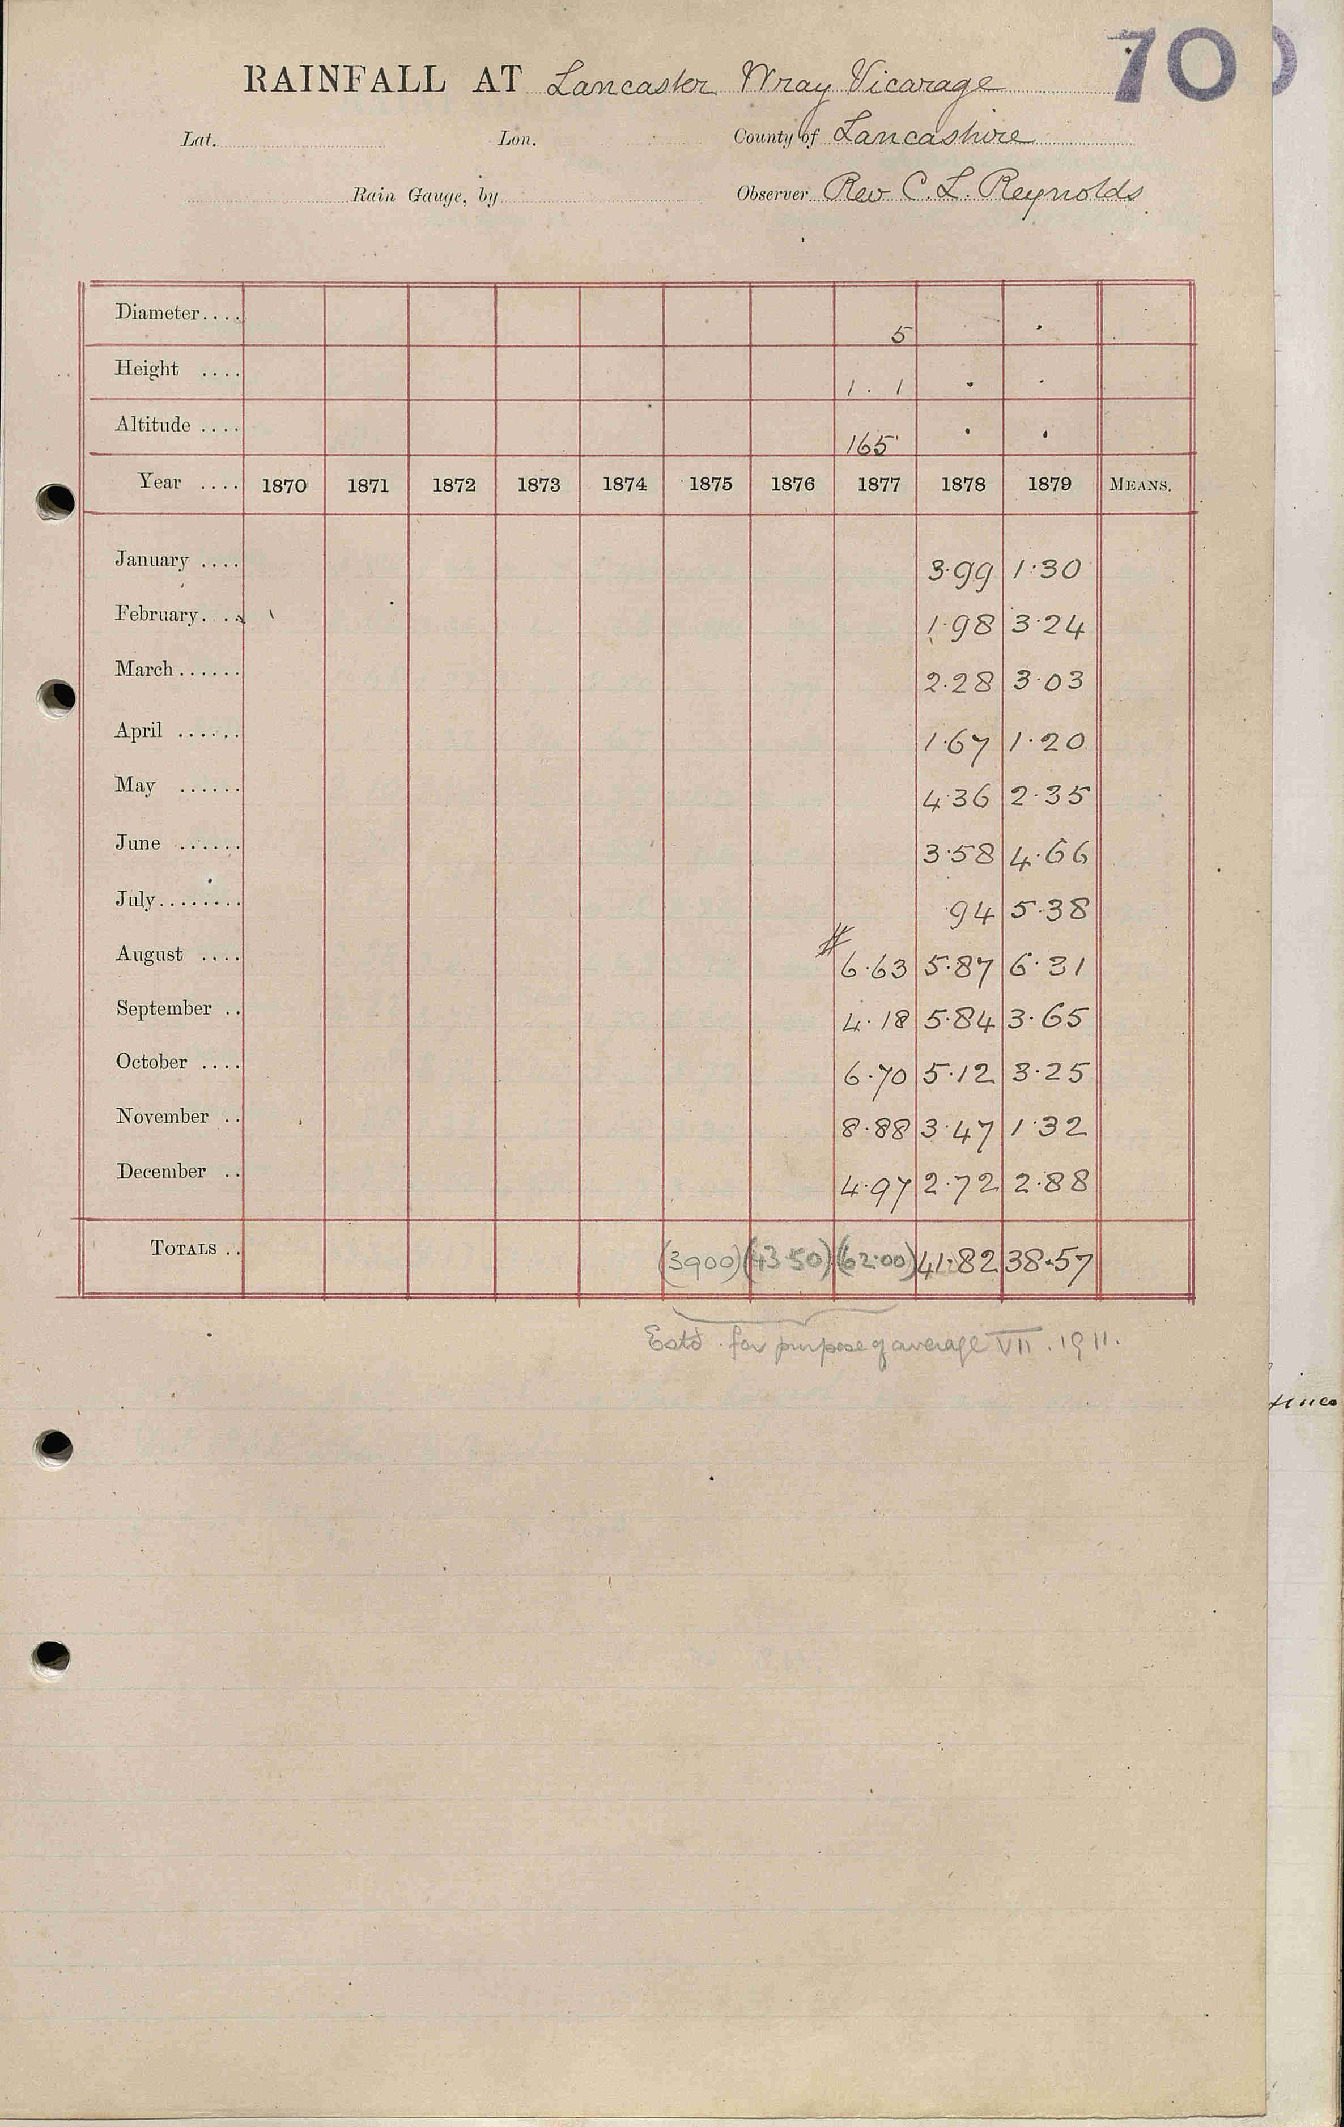 70
RAINFALL AT Lancaster Wray Vicarage
Lat. Lon. County of Lancashire
Rain Gauge, by Observer Rev C. L. Reynolds
Diameter.... 5
Height .... 1 . 1
Altitude .... 165'
Year .... 1870 1871 1872 1873 1874 1875 1876 1877 1878 1879 MEANS.
January .... 3.99 1.30
February.... 1.98 3.24
March...... 2.28 3.03
April ...... 1.67 1.20
May ...... 4.36 2.35
June ...... 3.58 4.66
July........ .94 5.38
August .... # 6.63 5.87 6.31
September .. 4.18 5.84 3.65
October .... 6.70 5.12 3.25
November .. 8.88 3.47 1.32
December .. 4.97 2.72 2.88
TOTALS .. (3900) (43.50) (62.00) 41.82 38.57
Estd. for purpose of average VII. 1911.